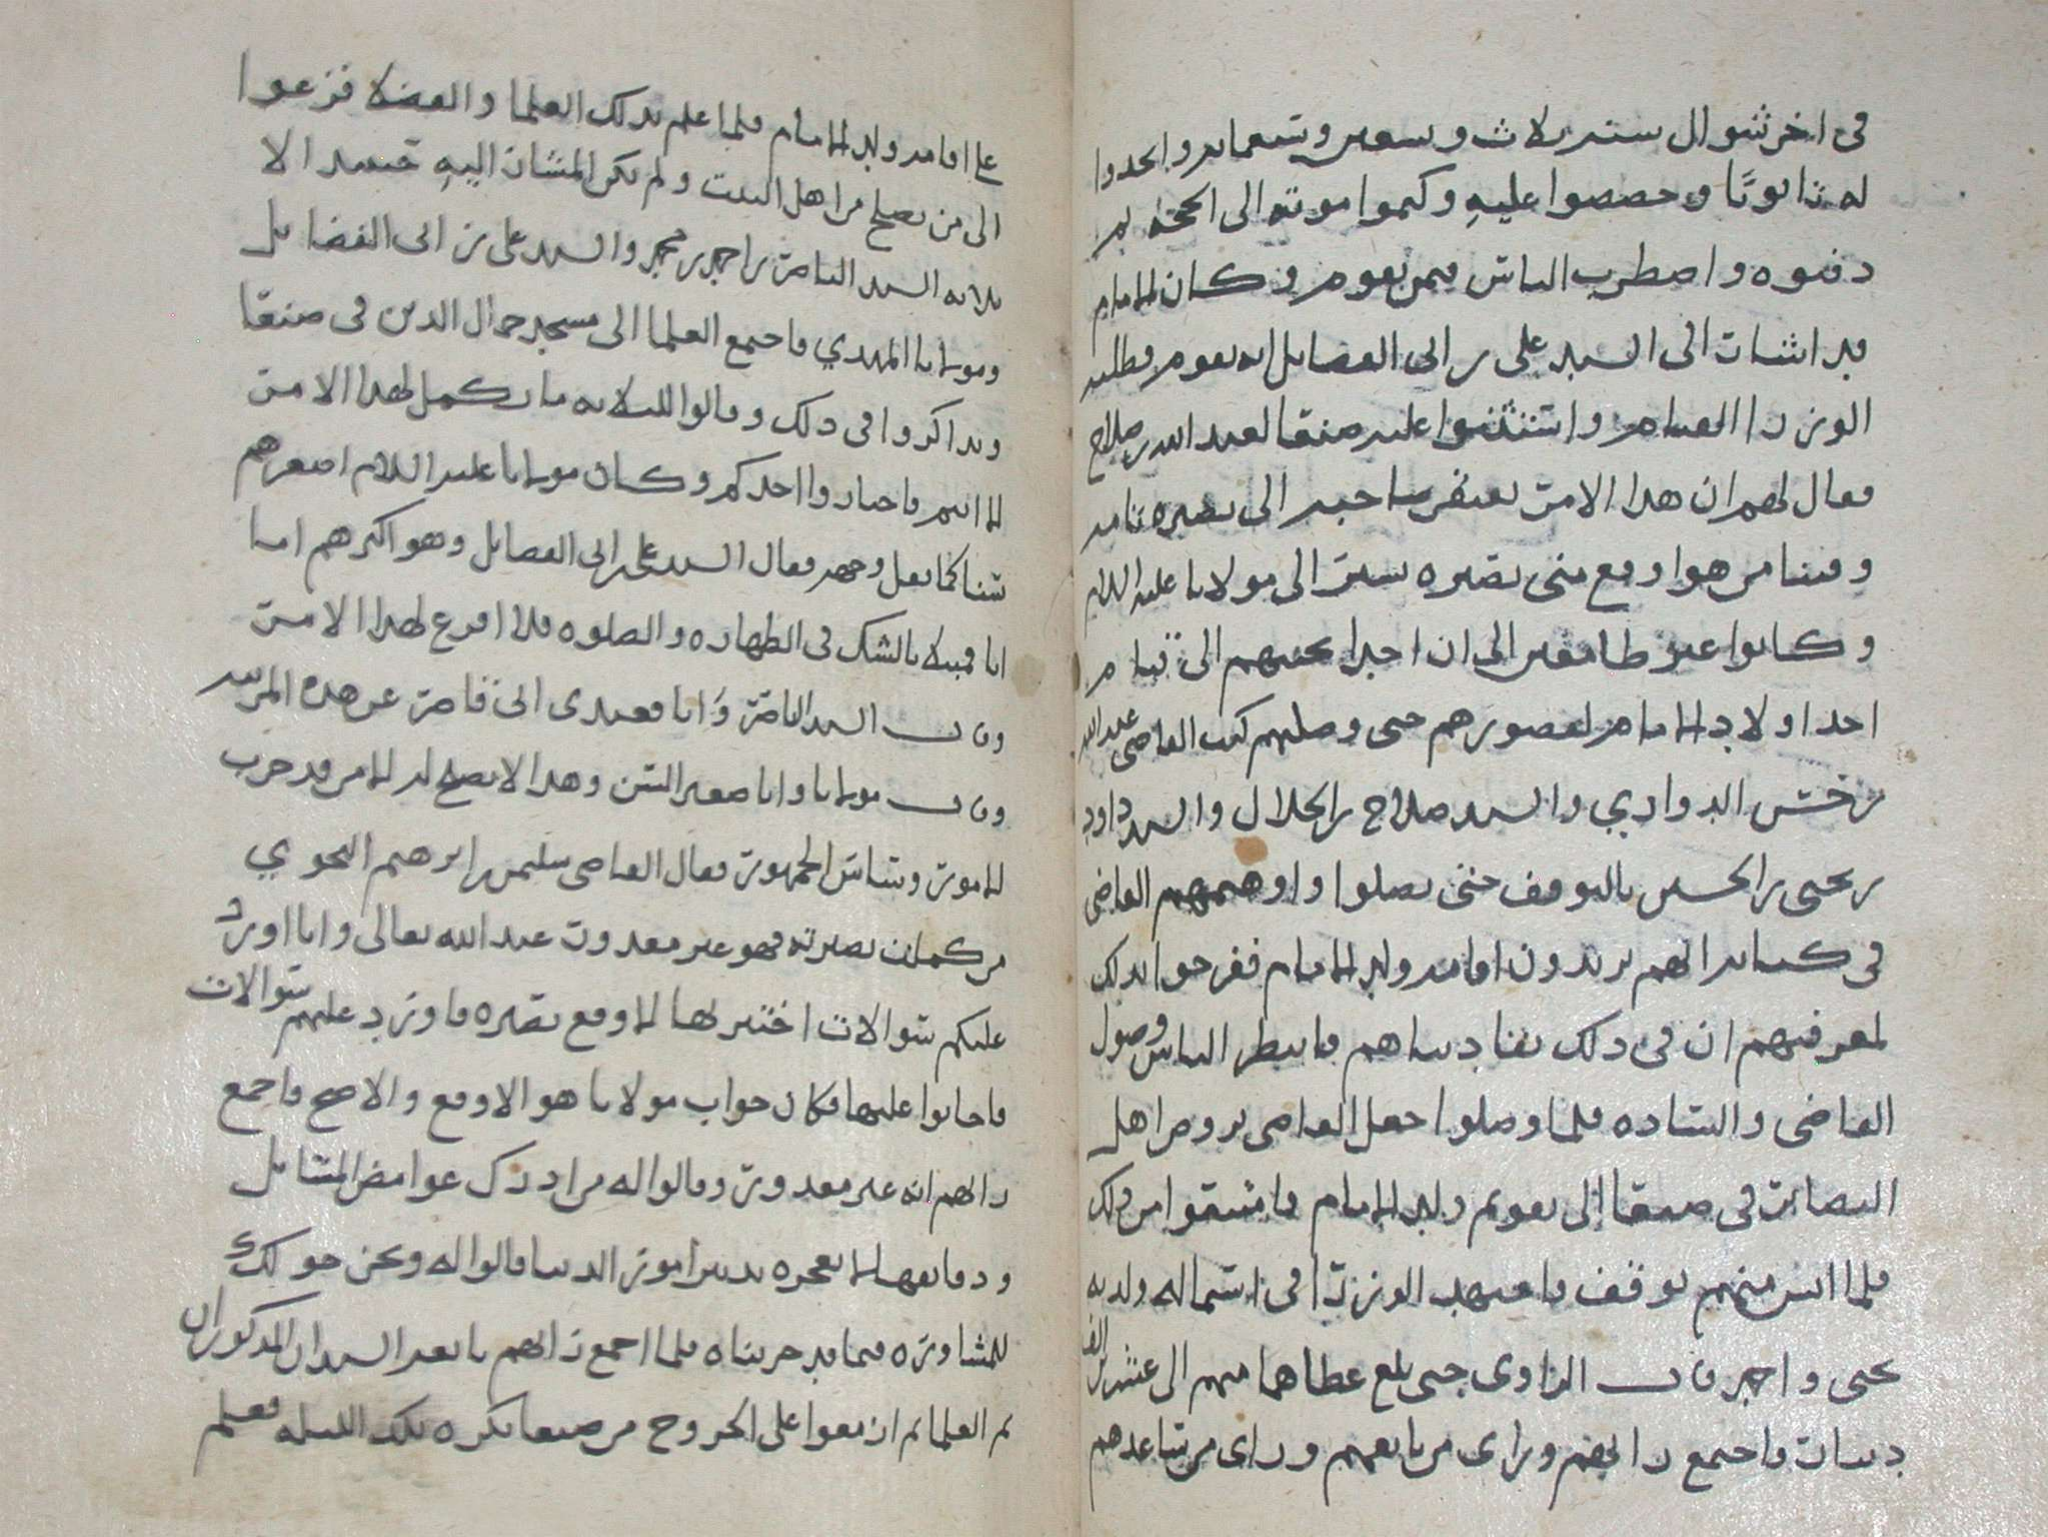 في اخر شوال سنة ثلاث وسبعين وسبعمايه واتخذوا
له تابوتًا وجصصوا عليه وكتموا موته الى الحجة ثم
دفنوه واضطرب الناس فيمن يقوم وكان الامام
قد اشار الى السيد علي بن ابي الفضايل انه يقوم فطلبه
الوزرا القيام واستثنوا عليه صنعا لعبد الله بن صلاح
فقال لهم ان هذا الامر يفتقر صاحبه الى بصيره تامه
وفينا من هو اوقع مني بصيره يشير الى مولانا عليه السلم
وكانوا غير طامعين الى ان احدا يجيبهم الى قيام
احد اولاد الامام لقصورهم حتى وصلهم كتب القاضي عبد الله
بن حسن الدواري والسيد صلاح بن الجلال والسيد داود
بن يحيى بن الحسين بالتوقف حتى يصلوا واوهمهم القاضي
في كتابه انهم يريدون اقامه ولد الامام ففرحوا بذلك
لمعرفتهم ان في ذلك بقا دنياهم فانتظر الناس وصول
القاضي والساده فلما وصلوا جعل القاضي يروض اهل
البصاير في صنعا الى تقويم ولد الامام فامتنعوا من ذلك
فلما ايس منهم توقف فاجتهد الوزرا في استماله ولديه
يحيى واحمد قال الراوي حتى بلغ عطاهما منهم الى عشرين الف
دينار فاجتمع رايهم وراى من تابعهم وراى من ساعدهم
على اقامه ولد الامام فلما علم بذلك العلما والفضلا فزعوا
الى من يصلح من اهل البيت ولم يكن المشار اليه حينيذ الا
ثلاثه السيد الناصر بن احمد بن محمد والسيد علي بن ابي الفضايل
ومولانا المهدي فاجتمع العلما الى مسجد جمال الدين في صنعا
وتذاكروا في ذلك وقالوا للثلاثه ما يكمل لهذا الامر
الا انتم فاختاروا احدكم وكان مولانا عليه السلام اصغرهم
سنا كما بقل وجهه فقال السيد علي بن ابي الفضايل وهو اكبرهم اما
انا فمبتلا بالشك في الطهاره والصلوه فلا افرغ لهذا الامر
وقال السيد الناصر وانا فعندي اني قاصر عن هذه المرتبه
وقال مولانا وانا صغير السن وهذا لا يصلح له الا من قد جرب
الامور وساس الجمهور فقال القاضي سليمن بن ابرهيم النحوي
من كملت بصيرته فهو غير معذور عند الله تعالى وانا اورد
عليكم سوالات اختبر لها الاوقع بصيره فاورد عليهم سوالات
فاجابوا عليها فكان جواب مولانا هو الاوقع والاصح فاجمع
رايهم انه غير معذور وقالوا له من ادرك غوامض المسايل
ودقايقها لا يعجزه تدبير امور الدنيا قالوا له ونحن حولك
للمشاوره فيما قد جربناه فلما اجمع رايهم بايعه السيدان المذكوران
ثم العلما ثم ازمعوا على الخروج من صنعا بكره تلك الليله فعلم